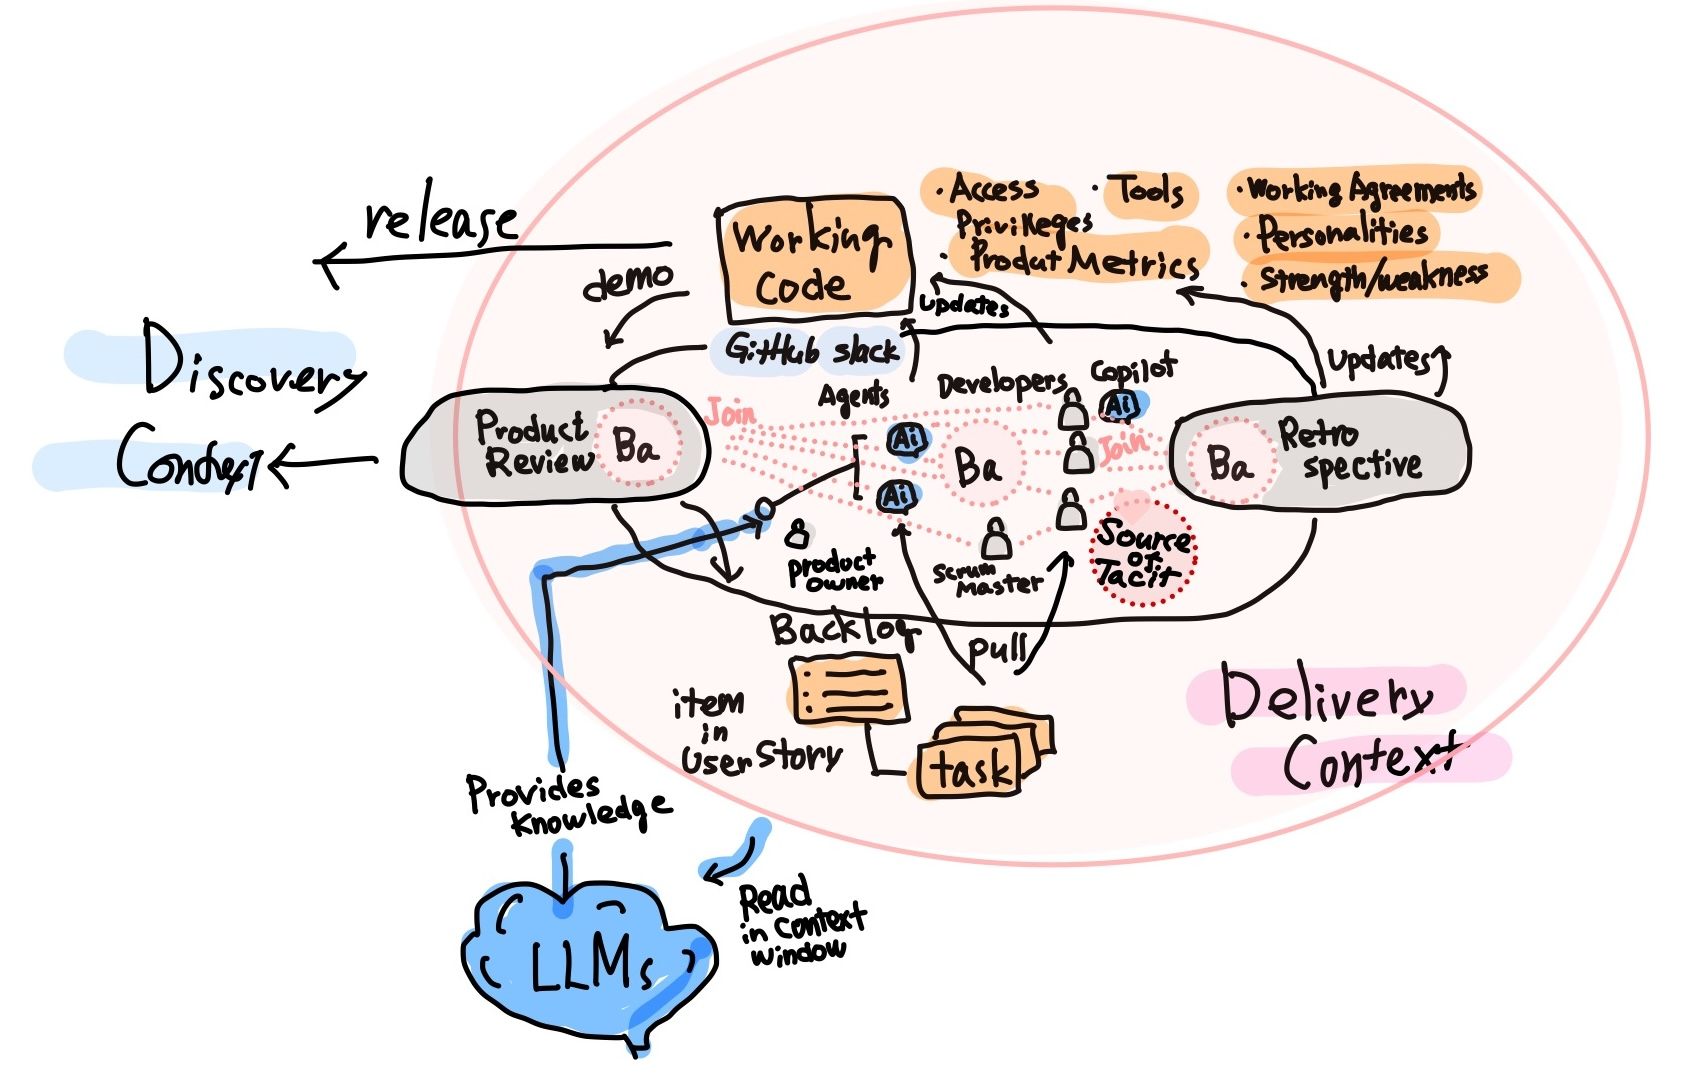 release
demo
Working
Code
GitHub slack
· Access
Privikeges
· Tools
· Produt Metrics
· Working Agreements
· Personalities
· Strength/weakness
updates
updates
Discovery
Context
Product
Review
Ba
Join
Agents
Ai
Ai
Ba
Developers
Copilot
Ai
Join
Ba
Retro
spective
Source
of
Tacit
product
owner
scrum
master
Backlog
pull
item
in
user story
task
Delivery
Context
Provides
knowledge
LLMs
Read
in context
window